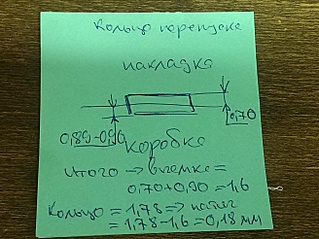 Кольцо перепуска
накладка
0,70
0,89-0,90
коробка
Итого → выемка =
0,70+0,90 = 1,6
Кольцо = 1,78 => натяг
= 1,78-1,6 = 0,18 мм